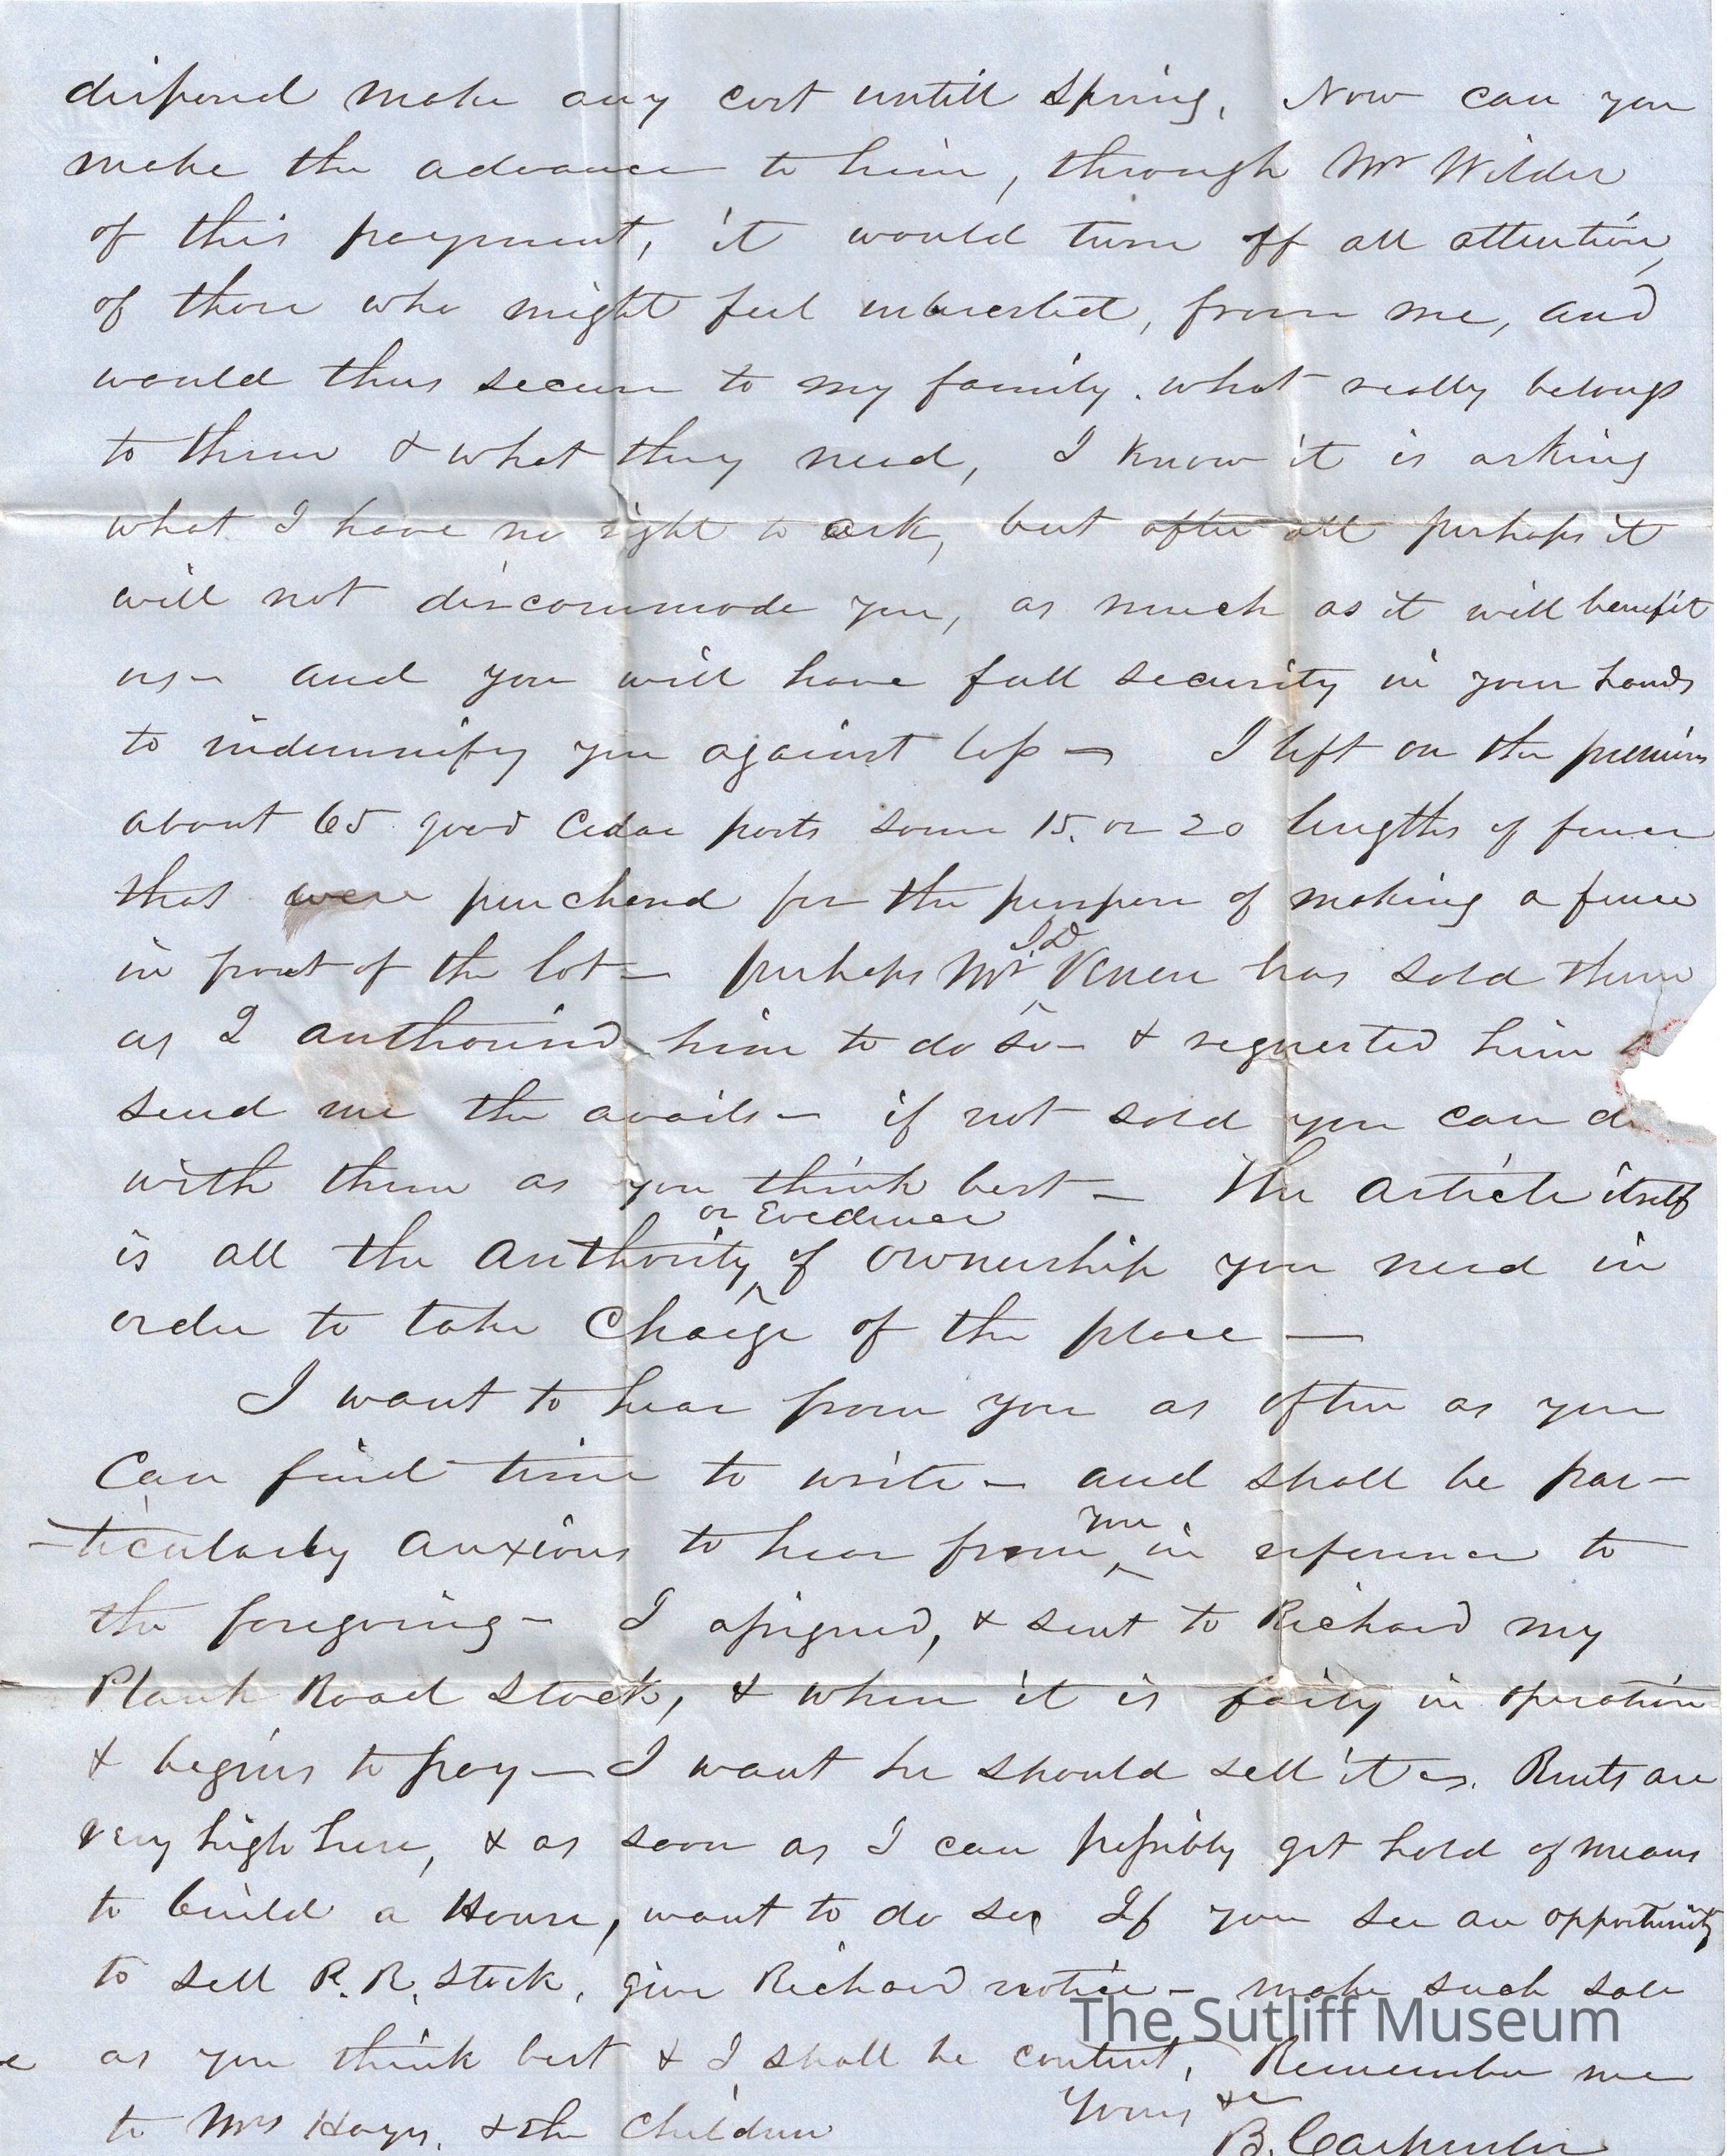 dispond make any cost untill Spring. Now can you
make the advance to him, through Mr Wilder
of this payment, it would turn off all attention,
of those who might feel interested, from me, and
would thus secure to my family. what really belongs
to them & what they need, I know it is asking
what I have no right to ask, but after all perhaps it
will not discommode you, as much as it will benefit
us - and you will have full security in your hands
to indemnify you against loss - I left on the premises
about 65 good Cedar posts some 15. or 20 lengths of fence
that were purchased for the purpose of making a fence
in front of the lot - perhaps Mr J. D. has sold them
as I authorised him to do so - & requested him
send me the avails - if not sold you can do
with them as you think best - The article itself
is all the authority or Evidence of ownership you need in
order to take Charge of the place -
I want to hear from you as often as you
Can find time to write - and shall be par-
-ticularly anxious to hear from you in reference to
the foregoing - I assigned, & sent to Richard my
Plank Road stock, & when it is fairly in operation
& begins to pay - I want he should sell it -. Rents are
very high here, & as soon as I can possibly get hold of means
to build a House, want to do so, If you see an opportunity
to sell R. R. stock, give Richard notice - make such sale
as you think best & I shall be content, Remember me
to Mrs Hayes. & the Children Yours &c
B. Carpenter
The Sutliff Museum